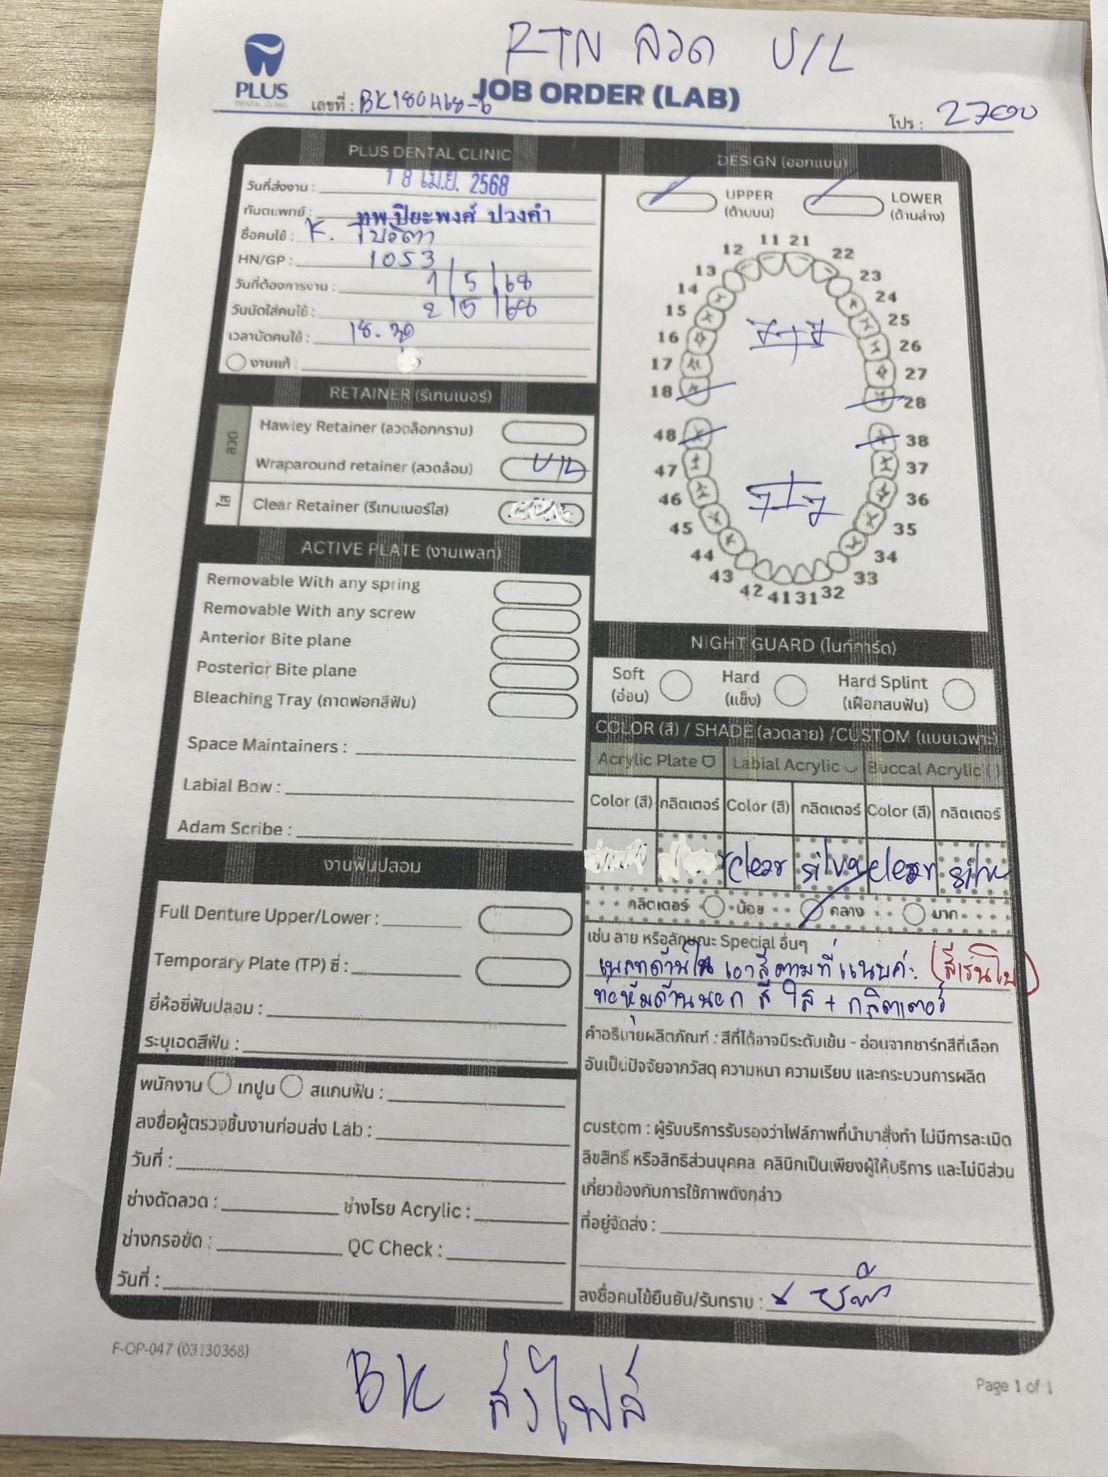 RTN ลวด U/L
PLUS
DENTAL CLINIC
เลขที่ : BK180468-6
JOB ORDER (LAB)
โปร : 2700
PLUS DENTAL CLINIC
วันที่ส่งงาน : 18 เม.ย. 2568
ทันตแพทย์ : ทพ.ปิยะพงศ์ ปวงคำ
ชื่อคนไข้ : K.
HN/GP : 1053
วันที่ต้องการงาน : 1/5/68
วันนัดใส่คนไข้ : 2/5/68
เวลานัดคนไข้ : 18.30
งานแก้ :
RETAINER (รีเทนเนอร์)
ลวด
Hawley Retainer (ลวดล็อกกราม)
Wraparound retainer (ลวดล้อม) U/L
ใส
Clear Retainer (รีเทนเนอร์ใส)
ACTIVE PLATE (งานเพลท)
Removable With any spring
Removable With any screw
Anterior Bite plane
Posterior Bite plane
Bleaching Tray (ถาดฟอกสีฟัน)
Space Maintainers :
Labial Bow :
Adam Scribe :
งานฟันปลอม
Full Denture Upper/Lower :
Temporary Plate (TP) ซี่ :
ยี่ห้อซี่ฟันปลอม :
ระบุเฉดสีฟัน :
พนักงาน เทปูน สแกนฟัน :
ลงชื่อผู้ตรวจชิ้นงานก่อนส่ง Lab :
วันที่ :
ช่างดัดลวด : ช่างโรย Acrylic :
ช่างกรอขัด : QC Check :
วันที่ :
DESIGN (ออกแบบ)
UPPER
(ด้านบน)
LOWER
(ด้านล่าง)
11 21
12 22
13 23
14 24
15 25
16 7+7 26
17 27
18 28
48 38
47 37
46 7+7 36
45 35
44 34
43 33
42 41 31 32
NIGHT GUARD (ไนท์การ์ด)
Soft
(อ่อน)
Hard
(แข็ง)
Hard Splint
(เฝือกสบฟัน)
COLOR (สี) / SHADE (ลวดลาย) /CUSTOM (แบบเฉพาะ)
Acrylic Plate Labial Acrylic Buccal Acrylic ( )
Color (สี) กลิตเตอร์ Color (สี) กลิตเตอร์ Color (สี) กลิตเตอร์
clear silver clear silver
กลิตเตอร์ น้อย กลาง มาก
เช่น ลาย หรือลักษณะ Special อื่นๆ
เพลทด้านใน เอาสีตามที่แนบค่ะ (สีเรนโบ)
ท่อหุ้มด้านนอก สีใส + กลิตเตอร์
คำอธิบายผลิตภัณฑ์ : สีที่ได้อาจมีระดับเข้ม - อ่อนจากชาร์ทสีที่เลือก
อันเป็นปัจจัยจากวัสดุ ความหนา ความเรียบ และกระบวนการผลิต
custom : ผู้รับบริการรับรองว่าไฟล์ภาพที่นำมาสั่งทำ ไม่มีการละเมิด
ลิขสิทธิ์ หรือสิทธิส่วนบุคคล คลินิกเป็นเพียงผู้ให้บริการ และไม่มีส่วน
เกี่ยวข้องกับการใช้ภาพดังกล่าว
ที่อยู่จัดส่ง :
ลงชื่อคนไข้ยืนยัน/รับทราบ : x
F-OP-047 (03130368)
Page 1 of 1
BK ส่งไฟล์